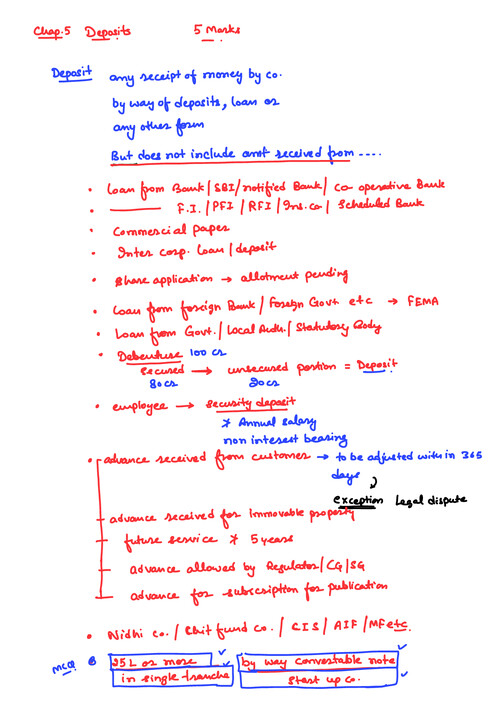 Chap.5 Deposits 5 Marks
Deposit any receipt of money by co.
by way of deposits, loan or
any other form
But does not include amt received from ----
• Loan from Bank / SBI / notified Bank / co operative Bank
• —— F.I. / PFI / RFI / Ins. co / Scheduled Bank
• Commercial paper
• Inter corp. Loan / deposit
• Share application → allotment pending
• Loan from foreign Bank / Foreign Govt. etc → FEMA
• Loan from Govt. / Local Auth. / Statutory Body
• Debenture 100 cr
Secured → unsecured portion = Deposit
80 cr 20 cr
• employee → security deposit
Annual salary
non interest bearing
• advance received from customer → to be adjusted with in 365
days
exception Legal dispute
advance received for Immovable property
future service 5 years
advance allowed by Regulator / CG / SG
advance for subscription for publication
• Nidhi co. / Chit fund co. / CIS / AIF / MF etc.
MCQ 25 L or more by way convertable note
in single tranche start up co.